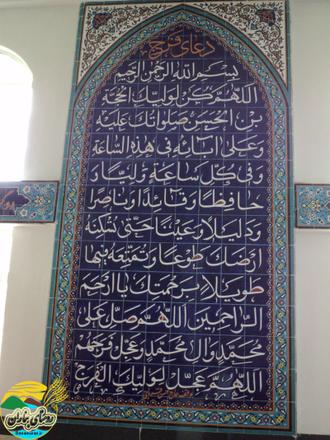 دعای فرج
بسم الله الرحمن الرحیم
اللهم کن لولیک الحجة
بن الحسن صلواتک علیه
وعلی ابائه فی هذه الساعة
وفی کل ساعة ولیا و
حافظا وقائدا وناصرا
ودلیلا وعینا حتی تسکنه
ارضک طوعا وتمتعه فیها
طویلا برحمتک یا ارحم
الراحمین اللهم صل علی
محمد وال محمد وعجل فرجهم
اللهم عجل لولیک الفرج